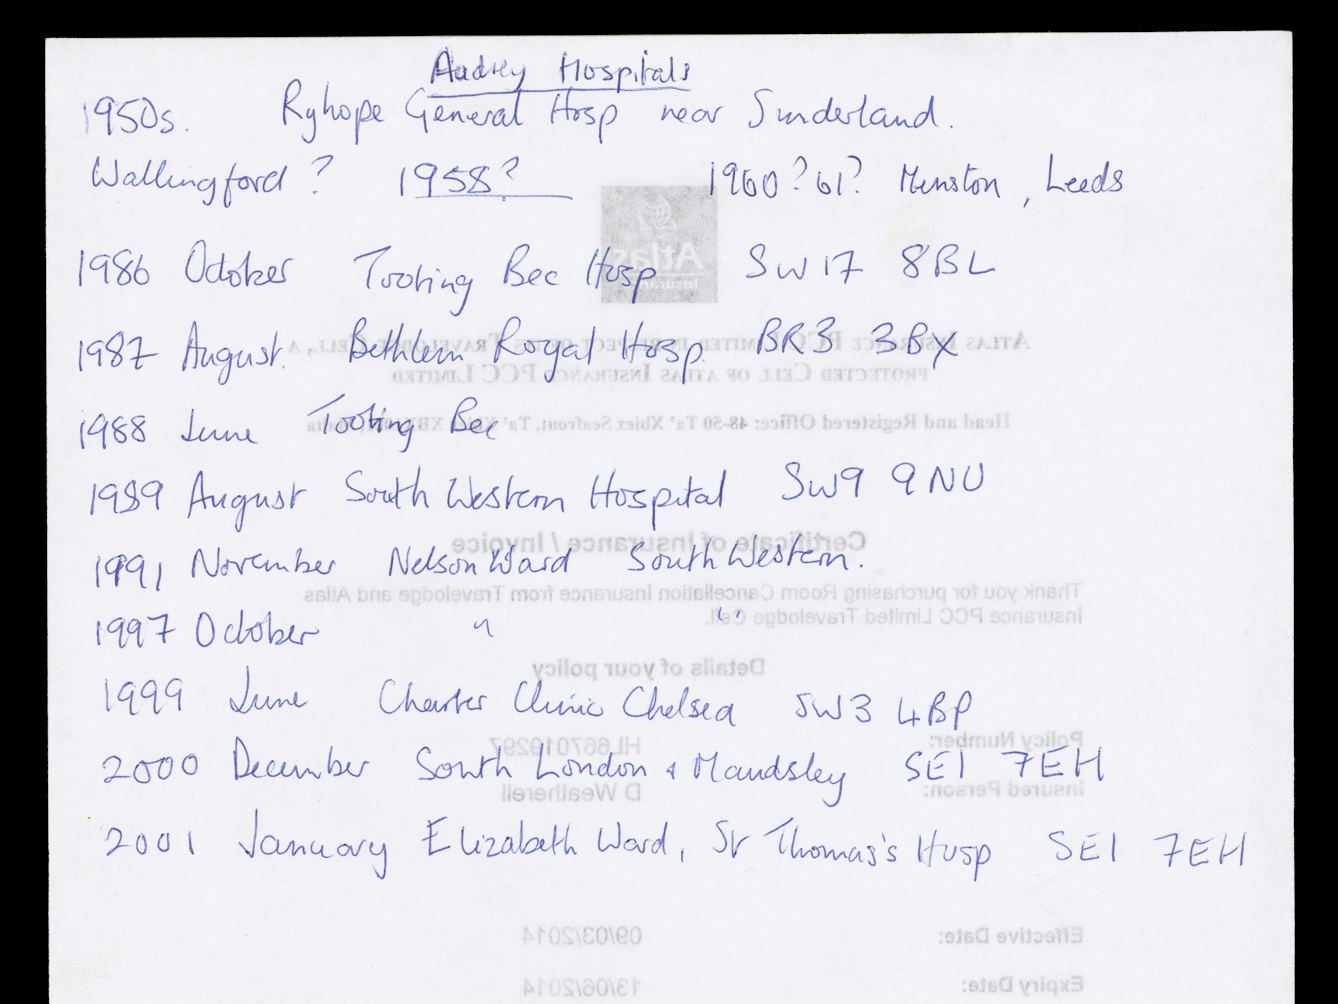 Audrey Hospitals
1950s. Ryhope General Hosp near Sunderland.
Wallingford? 1958? 1960? 61? Menston, Leeds
1986 October Tooting Bec Hosp SW17 8BL
1987 August. Bethlem Royal Hosp. BR3 3BX
1988 June Tooting Bec
1989 August South Western Hospital SW9 9NU
1991 November Nelson Ward South Western.
1997 October " "
1999 June Charter Clinic Chelsea SW3 4BP
2000 December South London & Maudsley SE1 7EH
2001 January Elizabeth Ward, St Thomas's Hosp SE1 7EH
Atlas
Insurance
ATLAS INSURANCE PCC LIMITED IN RESPECT OF ITS TRAVELODGE CELL, A
PROTECTED CELL OF ATLAS INSURANCE PCC LIMITED
Head and Registered Office: 48-50 Ta' Xbiex Seafront, Ta' Xbiex
Certificate of Insurance / Invoice
Thank you for purchasing Room Cancellation Insurance from Travelodge and Atlas
Insurance PCC Limited Travelodge Cell.
Details of your policy
Policy Number: HL667019297
Insured Person: D Weatherell
Effective Date: 09/03/2014
Expiry Date: 13/06/2014